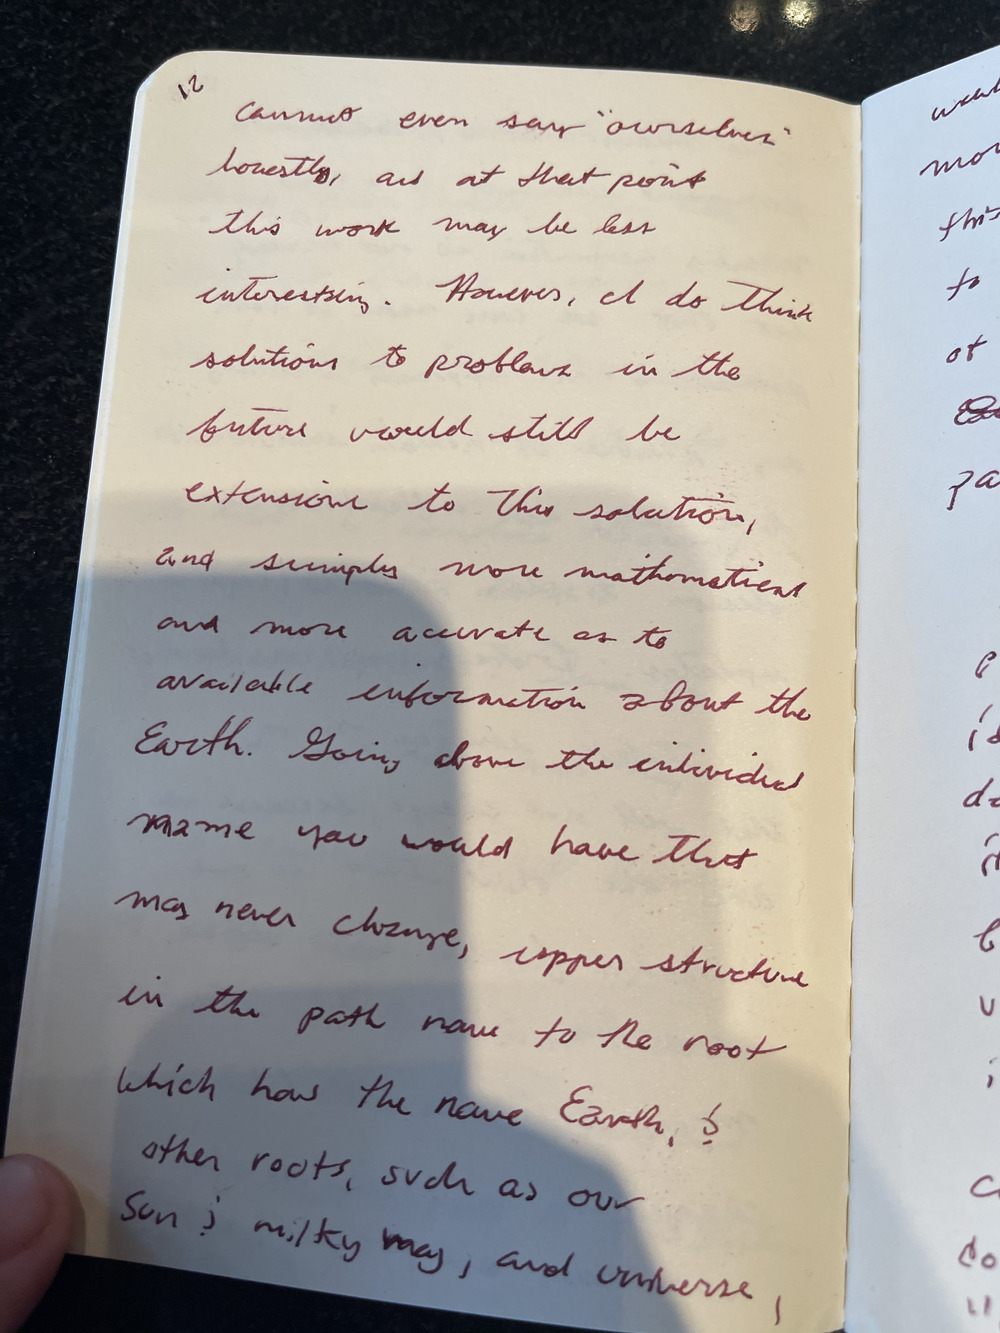 12
cannot even say "ourselves"
honestly, and at that point
this work may be less
interesting. However, I do think
solutions to problems in the
future would still be
extensions to this solution,
and simply more mathematical
and more accurate as to
available information about the
Earth. Going above the individual
name you would have that
may never change, upper structure
in the path name to the root
which has the name Earth, &
other roots, such as our
Sun & milky way, and universe,
weal
mor
this
to
at
pa
is
do
it
b
u
i
c
do